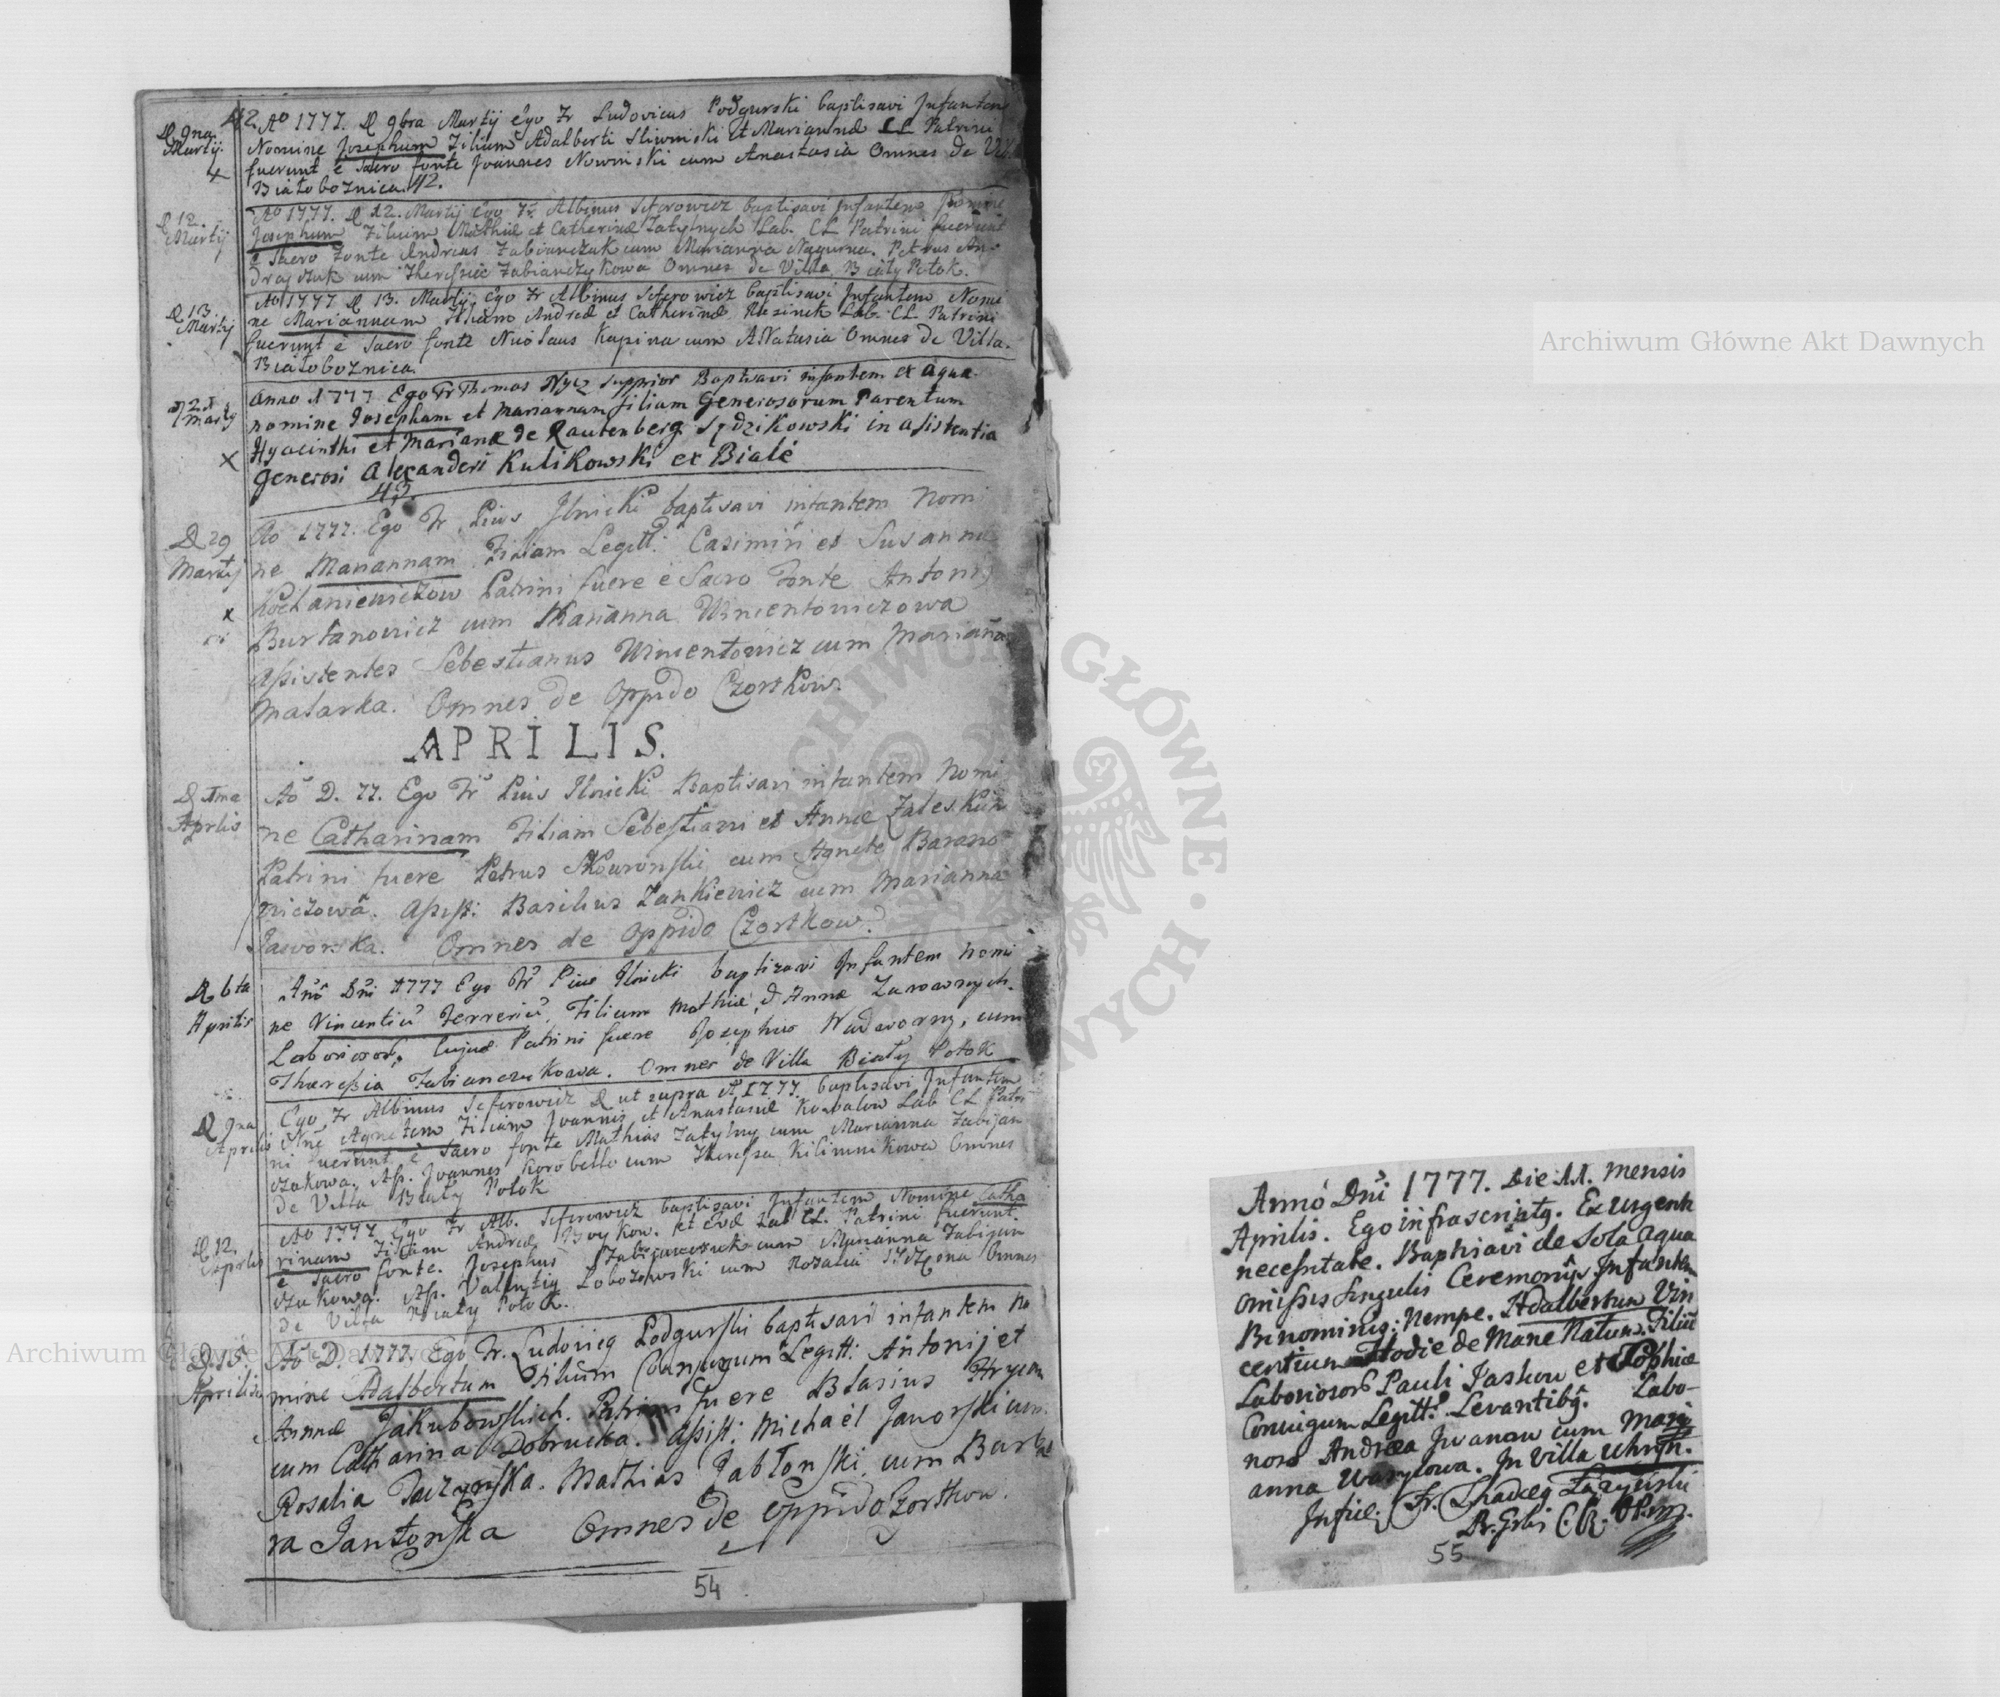 D. 9na
Martij
42. Ao 1777. D 9bra Martij Ego Fr Ludovicus Podgurski baptisavi Infantem
Nomine Josephum Filium Adalberti Sliwinski et Mariannæ LL Patrini
fuerunt è Sacro fonte Joannes Nowinski cum Anastasia Omnes de Vil
Białoboznica. 42.
D 12.
Martij
Ao 1777. D 12. Martij Ego Fr Albinus Seferowicz baptisavi Infantem Nomine
Josephum Filium Mathiæ et Catherinæ Zatylnych Lab. CL Patrini fuerunt
è Sacro Fonte Andreas Fabianczuk cum Marianna Nagurna. Petrus An-
drajczuk cum Theressia Fabianczykowa Omnes de Villa Biały Potok.
D 13.
Martij
Ao 1777 D 13. Martij Ego Fr Albinus Seferowicz baptisavi Infantem Nomi
ne Mariannam Filiam Andreæ et Catherinæ Lab. CL Patrini
fuerunt è Sacro fonte Nicolaus Kapina cum Omnes de Villa
Białoboznica.
Marty
Anno 1777 Ego Fr Thomas Nycz Supprior Baptisavi infantem ex aqua
nomine Josepham et Mariannam filiam Generosorum Parentum
Hyacinthi et Marianæ de Rautenberg Sędzikowski in asistentia
Generosi Alexanderi Kulikowski ex Biale
43.
D 29
Martij
Ao 1777. Ego Fr. Pius Ilnicki baptisavi infantem Nomi
ne Mariannam Filiam Legitt: Casimiri et Susannæ
Kochaniewiczow Patrini fuere è Sacro Fonte Antoni
Burtanowicz cum Marianna Wincentowiczowa
Assistentes Sebestianus Wincentowicz cum Mariana
Malarka. Omnes de Oppido Czortkow.
APRILIS.
D 1ma
Aprlis
Ao D. 77. Ego Fr Pius Ilnicki Baptisavi infantem Nomi
ne Catharinam Filiam Sebestiani et Annæ Zaleskich
Patrini fuere Petrus Skowronski cum Agnete Barano
wiczowa. Assist: Basilius Zankiewicz cum Marianna
Jaworska. Omnes de Oppido Czortkow.
D 6ta
Aprilis
Ano Dni 1777 Ego Fr Pius Ilnicki baptizavi Infantem Nomi
ne Vincentiu Ferreriu, Filium Mathiæ, & Annæ
Laborioso, Cujus Patrini fuere Josephus Nadworny, cum
Theressia Fabianczukowa. Omnes de Villa Biały Potok
D 9na
Aprilis
Ego Fr Albinus Seferowicz D ut supra Ao 1777. baptisavi Infantem
Nne Agnetem Filiam Joannis et Anastasiæ Kowalow Lab CL Patri
ni fuerunt è Sacro fonte Mathias Zatylny cum Marianna Fabijan
czukowa. As. Joannes Korobello cum Theressa Kilimnikowa Omnes
de Villa Biały Potok
D 12.
Aprilis
Ao 1777. Ego Fr Alb. Seferowicz baptisavi Infantem Nomine Catha
rinam Filiam Andreæ Boykow. et Evæ Lab CL. Patrini fuerunt
è Sacro fonte. Josephus cum Marianna Fabijan
czukowa. As. Valentiy Lobozowski cum Rozalia Omnes
de Villa Biały Potok.
D. 15.
Aprilis
Ao D. 1777. Ego Fr. Ludovicq Podgurski baptisavi infantem No
mine Adalbertum Filium Conjugum Legitt: Antonij et
Annæ Jakubowskich. Patrini fuere Blasius Hrycu
cum Catharina Dobrucka. Assist: Michael Jaworski cum
Rosalia Mathias Jabłonski cum Barba
ra Jantonska Omnes de Oppido Czortkow.
54
Anno Dni 1777. Die 11. mensis
Aprilis. Ego infrascriptg. Ex urgente
necessitate. Baptisavi de sola aqua
omissis singulis Ceremonijs Infantem
Binominis: Nempe. Adalbertum Vin
centium Hodie de Mane Natum. Filiu
Laboriosor Pauli Jaskow et Sophiæ
Conuigum Legitt: Levantibg. Labo-
rioso Andrea Jwanow cum Mari
anna Wasylowa. In Villa Uhryn.
In fide. Fr. Thadeg Łazyński
55
Archiwum Główne Akt Dawnych
Archiwum Główne Akt Dawnych
ARCHIWUM GŁÓWNE AKT DAWNYCH